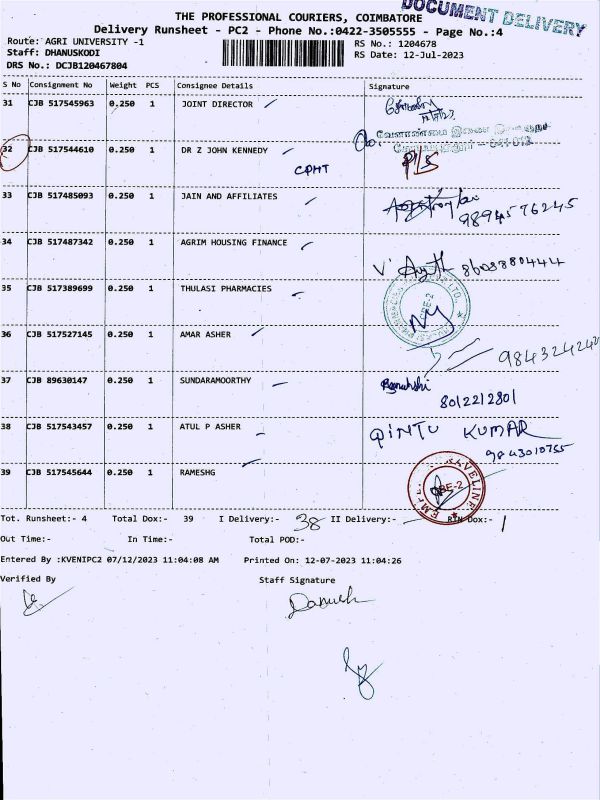 DOCUMENT DELIVERY
THE PROFESSIONAL COURIERS, COIMBATORE
Delivery Runsheet - PC2 - Phone No.:0422-3505555 - Page No.:4
Route: AGRI UNIVERSITY -1 RS No.: 1204678
Staff: DHANUSKODI RS Date: 12-Jul-2023
DRS No.: DCJB120467804
S No Consignment No Weight PCS Consignee Details Signature
31 CJB 517545963 0.250 1 JOINT DIRECTOR
வேளாண்மை
32 CJB 517544610 0.250 1 DR Z JOHN KENNEDY
CPHT
33 CJB 517485093 0.250 1 JAIN AND AFFILIATES
9894576245
34 CJB 517487342 0.250 1 AGRIM HOUSING FINANCE
35 CJB 517389699 0.250 1 THULASI PHARMACIES
36 CJB 517527145 0.250 1 AMAR ASHER
984324242
37 CJB 89630147 0.250 1 SUNDARAMOORTHY
8012212801
38 CJB 517543457 0.250 1 ATUL P ASHER PINTU KUMAR
9843010755
39 CJB 517545644 0.250 1 RAMESHG
Tot. Runsheet:- 4 Total Dox:- 39 I Delivery:- 38 II Delivery:- RTN Dox:- 1
Out Time:- In Time:- Total POD:-
Entered By :KVENIPC2 07/12/2023 11:04:08 AM Printed On: 12-07-2023 11:04:26
Verified By Staff Signature